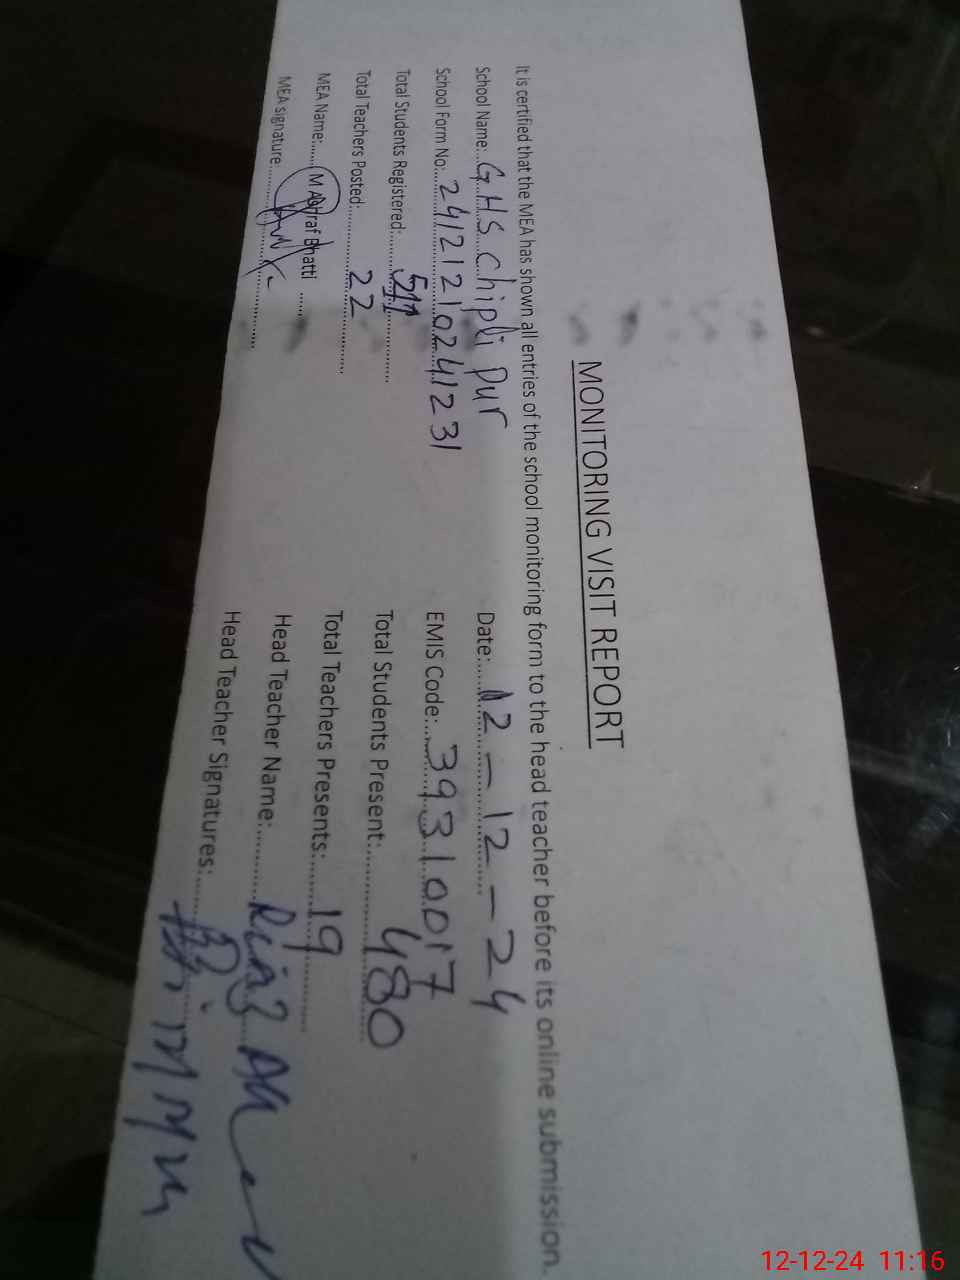 MONITORING VISIT REPORT
It is certified that the MEA has shown all entries of the school monitoring form to the head teacher before its online submission.
School Name:...GHS chipli pur Date:....12-12-24
School Form No:...2412121024123​1 EMIS Code:...39310017
Total Students Registered:......511 Total Students Present:......480
Total Teachers Posted:......22 Total Teachers Presents:......19
MEA Name:......M Ashraf Bhatti ...... Head Teacher Name:......Riaz
MEA signature:...... Head Teacher Signatures:......
12-12-24 11:16